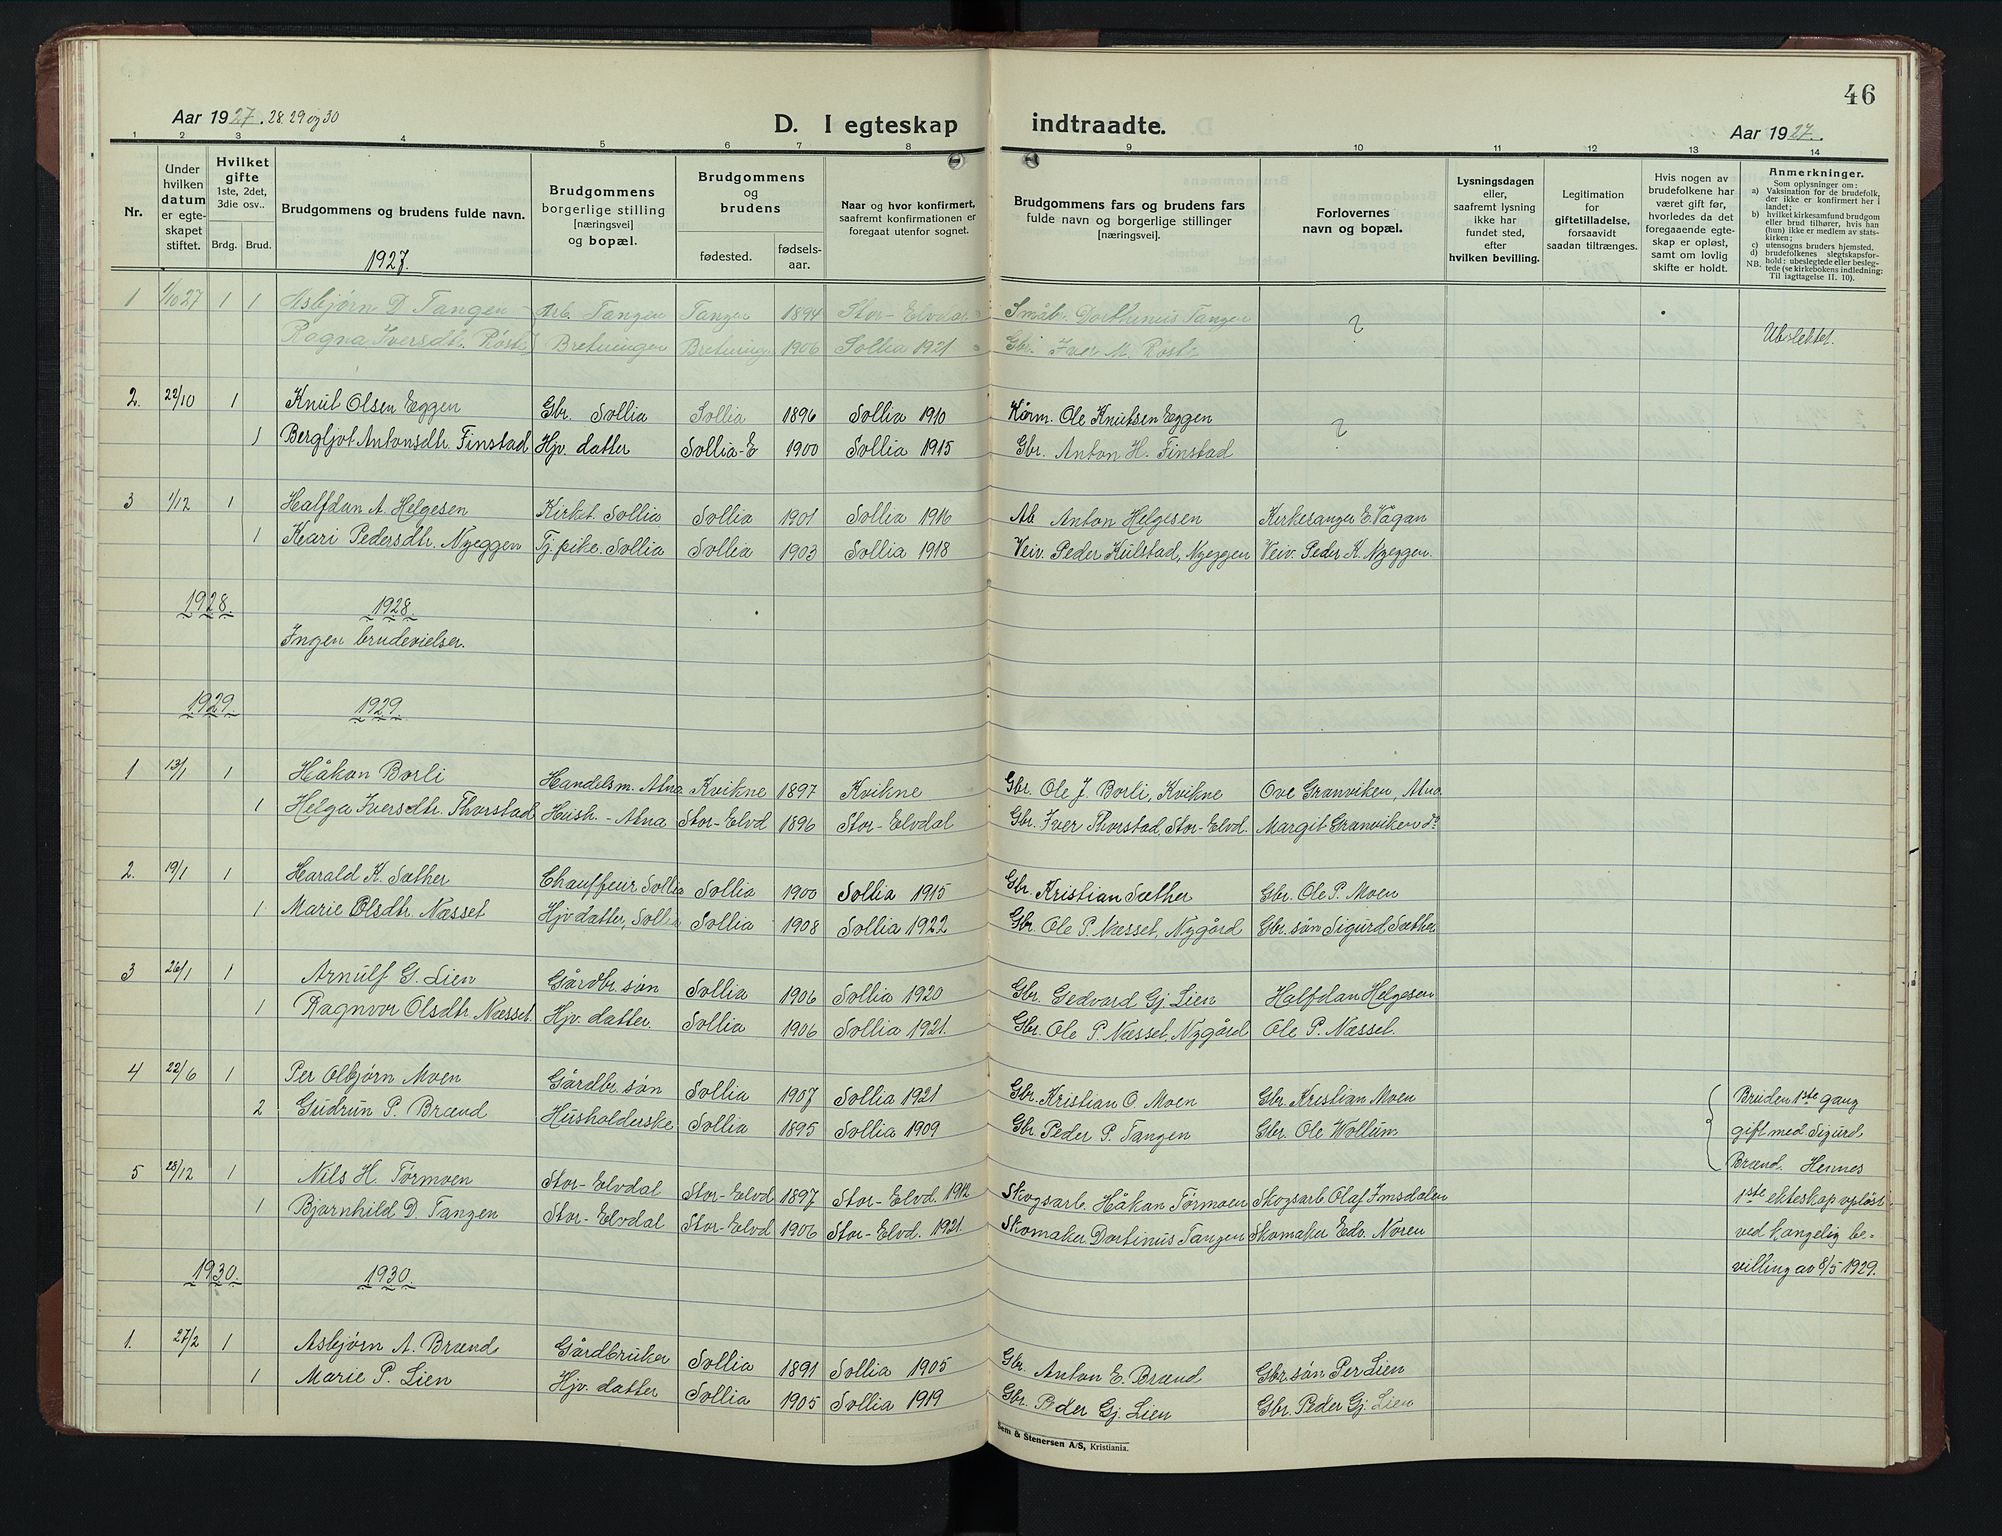 46
Aar 1927. 28. 29 og 30
D. I egteskap indtraadte.
Aar 1927.
1 2 3 4 5 6 7 8 9 10 11 12 13 14
Nr.
Under hvilken datum er egteskapet stiftet.
Hvilket gifte 1ste, 2det, 3die osv..
Brdg. Brud.
Brudgommens og brudens fulde navn.
Brudgommens borgerlige stilling [næringsvei] og bopæl.
Brudgommens og brudens
fødested. fødsels-aar.
Naar og hvor konfirmert, saafremt konfirmationen er foregaat utenfor sognet.
Brudgommens fars og brudens fars fulde navn og borgerlige stillinger [næringsvei].
Forlovernes navn og bopæl.
Lysningsdagen eller, saafremt lysning ikke har fundet sted, efter hvilken bevilling.
Legitimation for giftetilladelse, forsaavidt saadan tiltrænges.
Hvis nogen av brudefolkene har været gift før, hvorledes da det foregaaende egteskap er opløst, samt om lovlig skifte er holdt.
Anmerkninger.
Som oplysninger om:
a) Vaksination for de brudefolk, der ikke er konfirmert her i landet;
b) hvilket kirkesamfund brudgom eller brud tilhører, hvis han (hun) ikke er medlem av statskirken;
c) utensogns bruders hjemsted.
d) brudefolkenes slegtskapsforhold: ubeslegtede eller beslegtede (se kirkebokens indledning: Til iagttagelse II. 10).
NB.
1927.
1 1/10 27 1 1 Asbjørn D. Tangen Arb. Tangen Tangen 1894 Stor-Elvdal Småbr. Dorthinus Tangen ?
Ragna Iversdtr. Røst Bretningen Bretningen 1906 Sollia 1921 Gbr. Iver M. Røst Ubslektet.
2. 22/10 1 Knut Olsen Eggen Gbr. Sollia Sollia 1896 Sollia 1910 Kårm. Ole Knutsen Eggen ?
1 Bergljot Antonsdtr. Finstad Hjv. datter Sollia-E 1900 Sollia 1915 Gbr. Anton H. Finstad
3 1/12 1 Halfdan A. Helgesen Kirket. Sollia Sollia 1901 Sollia 1916 Ab Anton Helgesen Kirkesanger E. Vågan
1 Kari Pedersdtr. Nyeggen Tj. pike. Sollia Sollia 1903 Sollia 1918 Veiv. Peder Kulstad, Nyeggen Veiv. Peder K. Nyeggen.
1928. 1928.
Ingen brudevielser.
1929. 1929
1 13/1 1 Håkon Borli Handelsm. Atna Kvikne 1897 Kvikne Gbr. Ole J. Borli, Kvikne Ove Granviken, Atna
1 Helga Iversdtr. Thorstad Hush. - Atna Stor-Elvd 1896 Stor-Elvdal Gbr. Iver Thorstad, Stor-Elvd. Margit Granviken do
2. 19/1 1 Harald K. Sæther Chauffeur Sollia Sollia 1900 Sollia 1915 Gbr. Kristian Sæther Gbr. Ole P. Moen
1 Marie Olsdtr. Næsset Hjv datter, Sollia Sollia 1908 Sollia 1922 Gbr. Ole P. Næsset, Nygård Gbr. søn Sigurd Sæther
3 26/1 1 Arnulf G. Lien Gårdbr. søn Sollia 1906 Sollia 1920 Gbr. Gedvard Gj. Lien Halfdan Helgesen
1 Ragnvor Olsdtr Næsset. Hjv. datter. Sollia 1906 Sollia 1921. Gbr. Ole P. Næsset, Nygård Ole P. Næsset.
4 22/6 1 Per Olbjørn Moen Gårdbr. søn Sollia 1907 Sollia 1921 Gbr. Kristian O. Moen Gbr. Kristian Moen Bruden 1ste gang
2 Gudrun P. Brænd Husholderske Sollia 1895 Sollia 1909 Gbr Peder P. Tangen Gbr. Ole Wollum gift med Sigurd
Brænd. Hennes
5 28/12 1 Nils H. Tørmoen Stor-Elvdal Stor-Elvd 1897 Stor-Elvd. 1912 Skogsarb. Håkan Tørmoen Skogsarb Olaf Imsdalen 1ste ekteskap opløst
1 Bjørnhild D. Tangen Stor-Elvdal Stor-Elvd 1906 Stor-Elvd. 1921. Skomaker Dortinus Tangen Skomaker Edv. Noren ved kongelig be-
villing av 8/5 1929.
1930. 1930.
1. 27/2 1 Asbjørn A. Brænd Gårdbruker Sollia 1891 Sollia 1905 Gbr. Anton E. Brænd Gbr. søn Per Lien
1 Marie P. Lien Hjv. datter Sollia 1905 Sollia 1919 Gbr. Peder Gj. Lien Gbr. Peder Gj. Lien
Sem & Stenersen A/S, Kristiania.